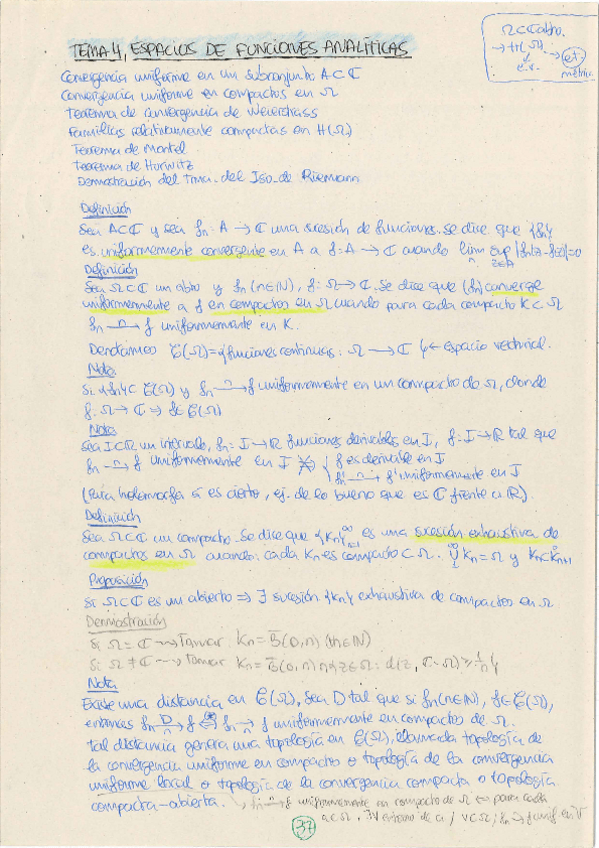 TEMA 4, ESPACIOS DE FUNCIONES ANALÍTICAS
Ω⊂ℂ abto.
→ H(Ω) → et.
e.v. métrico
Convergencia uniforme en un subconjunto A⊂ℂ
Convergencia uniforme en compactos en Ω
Teorema de convergencia de Weierstrass
Familias relativamente compactas en H(Ω)
Teorema de Montel
Teorema de Hurwitz
Demostración del Tma. del Iso. de Riemann
Definición
Sea A⊂ℂ y sea fn: A → ℂ una sucesión de funciones. Se dice que {fn}
es uniformemente convergente en A a f: A → ℂ cuando lim sup |fn(z)-f(z)|=0
n z∈A
Definición
Sea Ω⊂ℂ un abto y fn (n∈ℕ), f: Ω→ℂ. Se dice que (fn) converge
uniformemente a f en compactos en Ω cuando para cada compacto K⊂Ω
fn →n f uniformemente en K.
Denotamos C(Ω)={funciones continuas: Ω → ℂ} ← espacio vectorial.
Nota
Si {fn}⊂ C(Ω) y fn →n f uniformemente en un compacto de Ω, donde
f: Ω→ ℂ ⇒ f∈ C(Ω)
Nota
Sea I⊂ℝ un intervalo, fn: I→ℝ funciones derivables en I, f: I→ℝ tal que
fn →n f uniformemente en I ⇏ { f es derivable en I
fn' →n f' uniformemente en I
(Para holomorfa sí es cierto, ej. de lo bueno que es ℂ frente a ℝ).
Definición
Sea Ω⊂ℂ un compacto. Se dice que {Kn}∞n=1 es una sucesión exhaustiva de
compactos en Ω cuando: cada Kn es compacto ⊂ Ω. ∞∪1 Kn=Ω y Kn⊂K°n+1
Proposición
Si Ω⊂ℂ es un abierto ⇒ ∃ sucesión {Kn} exhaustiva de compactos en Ω
Demostración
Si Ω = ℂ ⇝ Tomar Kn = B̄(0,n) (n∈ℕ)
Si Ω ≠ ℂ ⇝ Tomar Kn = B̄(0,n) ∩ {z∈Ω: d(z, ℂ-Ω) ≥ 1/n}
Nota
Existe una distancia en C(Ω), sea D tal que si fn (n∈ℕ), f∈C(Ω),
entonces fn →D f ⇔ fn →n f uniformemente en compactos de Ω.
Tal distancia genera una topología en C(Ω), llamada topología de
la convergencia uniforme en compactos o topología de la convergencia
uniforme local o topología de la convergencia compacta o topología
compacta-abierta. → fn →n f uniformemente en compacto de Ω ⇔ para cada
a∈Ω, ∃V entorno de a / V⊂Ω; fn → f unif en V
37